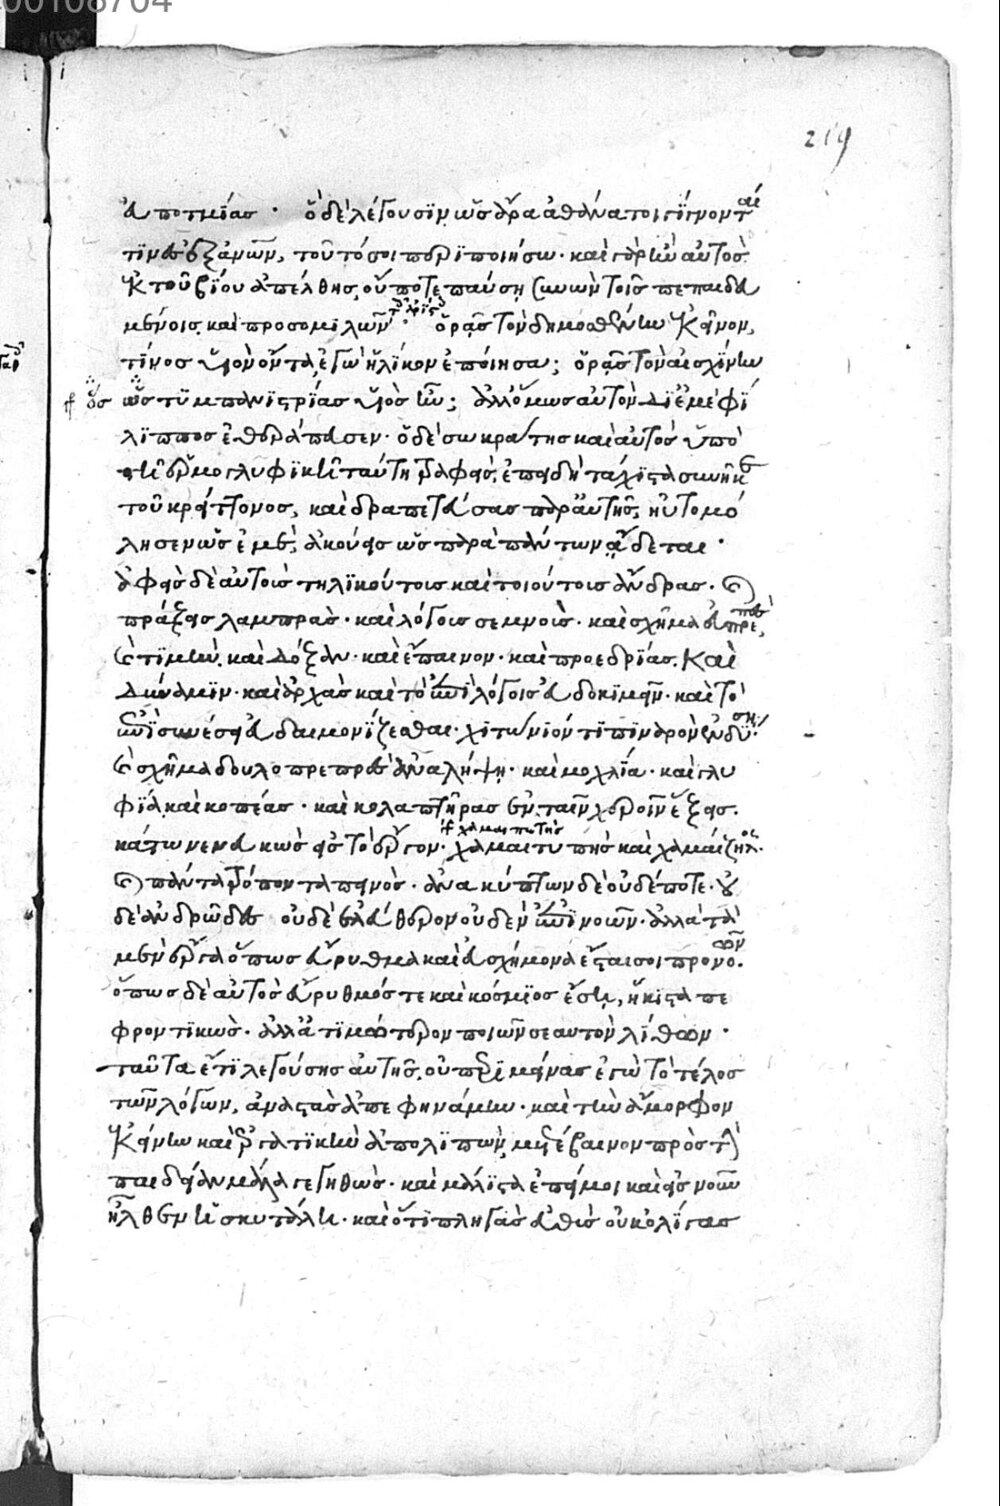 00108704
219
ἀποτμίας · ὃ δὲ λέγουσιν ὡς ἄρα ἀθάνατοι γίγνονταί
τινες ἐξ ἀνθρώπων, τοῦτό σοι περιποιήσω · καὶ γὰρ ἢν αὐτὸς
ἐκ τοῦ βίου ἀπέλθης, οὔποτε παύση ξυνὼν τοῖς πεπαιδευ
μένοις καὶ προσομιλῶν τοῖς ἀρίστοις · ὁρᾶς τὸν δημοσθένην ἐκεῖνον,
τίνος υἱὸν ὄντα, ἐγὼ ἡλίκον ἐποίησα; ὁρᾶς τὸν αἰσχίνην
ὃς
ὡς τυμπανιστρίας υἱὸς ἦν; ἀλλ' ὅμως αὐτὸν δι' ἐμὲ φί
λιππος ἐθεράπευσεν · ὁ δὲ σωκράτης καὶ αὐτὸς ὑπὸ
τῆ ἑρμογλυφικῆ ταύτη τραφεὶς, ἐπειδὴ τάχιστα συνῆκε
τοῦ κρείττονος, καὶ δραπετεύσας παρ' αὐτῆς, ηὐτομό
λησεν ὡς ἐμέ, ἀκούεις ὡς παρὰ πάντων ἄδεται ·
ἀφεὶς δὲ αὐτοὺς τηλικούτους καὶ τοιούτους ἄνδρας · καὶ
πράξεις λαμπρὰς · καὶ λόγους σεμνοὺς · καὶ σχῆμα εὐπρεπὲς,
καὶ τιμὴν καὶ δόξαν · καὶ ἔπαινον · καὶ προεδρίας. καὶ
δύναμιν · καὶ ἀρχὰς καὶ τὸ ἐπὶ λόγοις εὐδοκιμεῖν · καὶ τὸ
ἐπὶ συνέσει εὐδαιμονίζεσθαι · χιτώνιόν τι πιναρὸν ἐνδύσῃ ·
καὶ σχῆμα δουλοπρεπὲς ἀναλήψη · καὶ μοχλία · καὶ γλυ
φία καὶ κοπέας · καὶ κολαπτῆρας ἐν ταῖν χεροῖν ἕξεις.
κάτω νενευκὼς εἰς τὸ ἔργον · χαμαιτυπὴς καὶ χαμαίζηλος ·
χαμαιπετὴς
καὶ πάντα τρόπον ταπεινὸς · ἀνακύπτων δὲ οὐδέποτε · οὐ
δὲ ἀνδρῶδες οὐδὲ ἐλεύθερον οὐδὲν ἐπινοῶν · ἀλλὰ τὰ
μὲν ἔργα ὅπως εὔρυθμα καὶ εὐσχήμονα ἔσται σοι προνοῶν ·
ὅπως δὲ αὐτὸς εὔρυθμός τε καὶ κόσμιος ἔση, ἥκιστα πε
φροντικὼς · ἀλλ' ἀτιμότερον ποιῶν σεαυτὸν λίθων ·
ταῦτα ἔτι λεγούσης αὐτῆς, οὐ περιμείνας ἐγὼ τὸ τέλος
τῶν λόγων, ἀναστὰς ἀπεφηνάμην · καὶ τὴν ἄμορφον
ἐκείνην καὶ ἐργατικὴν ἀπολιπών, μετέβαινον πρὸς τὴν
παιδείαν μάλα γεγηθὼς · καὶ μάλιστα ἐπεί μοι καὶ εἰς νοῦν
ἦλθεν ἡ σκυτάλη · καὶ ὅτι πληγὰς εὐθὺς οὐκ ὀλίγας